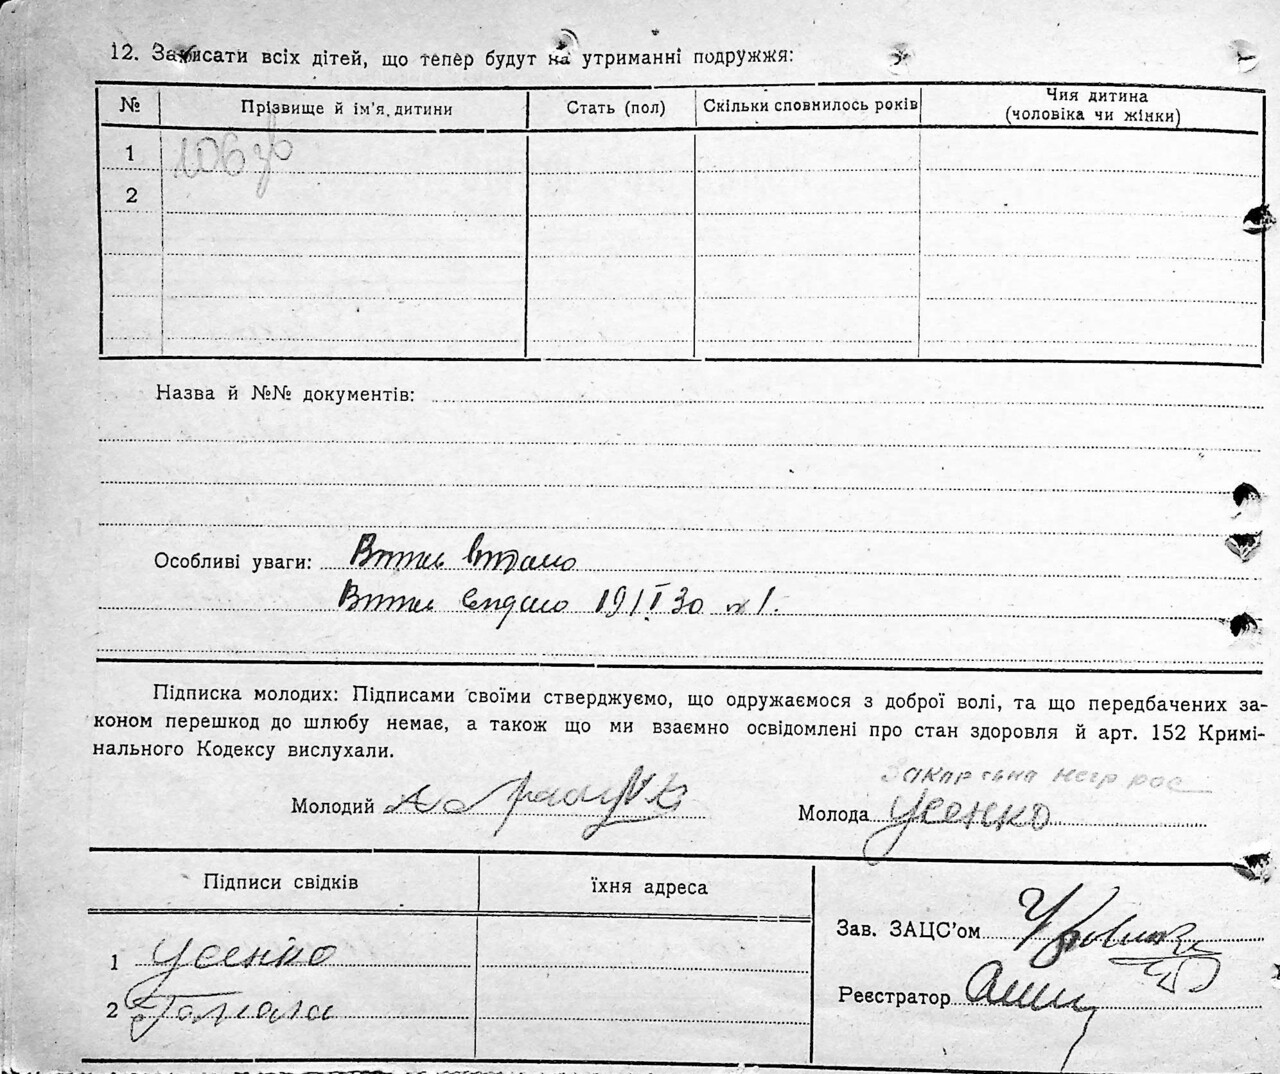 12. Записати всіх дітей, що тепер будут на утриманні подружжя:
№ Прізвище й ім'я дитини Стать (пол) Скільки сповнилось років Чия дитина (чоловіка чи жінки)
1 106
2
Назва й №№ документів:
Особливі уваги: Витяг
Витяг видано 19/I 30 № 1.
Підписка молодих: Підписами своїми стверджуємо, що одружаємося з доброї волі, та що передбачених за-
коном перешкод до шлюбу немає, а також що ми взаємно освідомлені про стан здоровля й арт. 152 Кримі-
нального Кодексу вислухали.
Молодий
Молода Усенко
Підписи свідків їхня адреса
1 Усенко
2
Зав. ЗАЦС'ом
Реєстратор